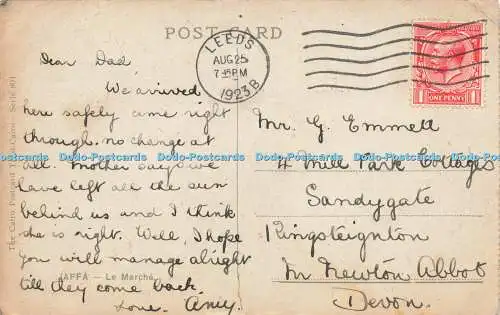 POST CARD
LEEDS
AUG 25
7-15PM
1923 B
1 ONE PENNY 1
Dear Dad
We arrived
here safely came right
through, no change at
all. Mother says we
have left all the sun
behind us and I think
she is right. Well, I hope
you will manage alright
till they come back.
Love. Amy.
Mr. G. Emmett
4 Mill Park Cottages
Sandygate
Kingsteignton
Nr Newton Abbot
Devon.
JAFFA — Le Marché.
The Cairo Postcard Trust, Cairo. Serie 801
Dodo-Postcards Dodo-Postcards Dodo-Postcards Dodo-Postcards